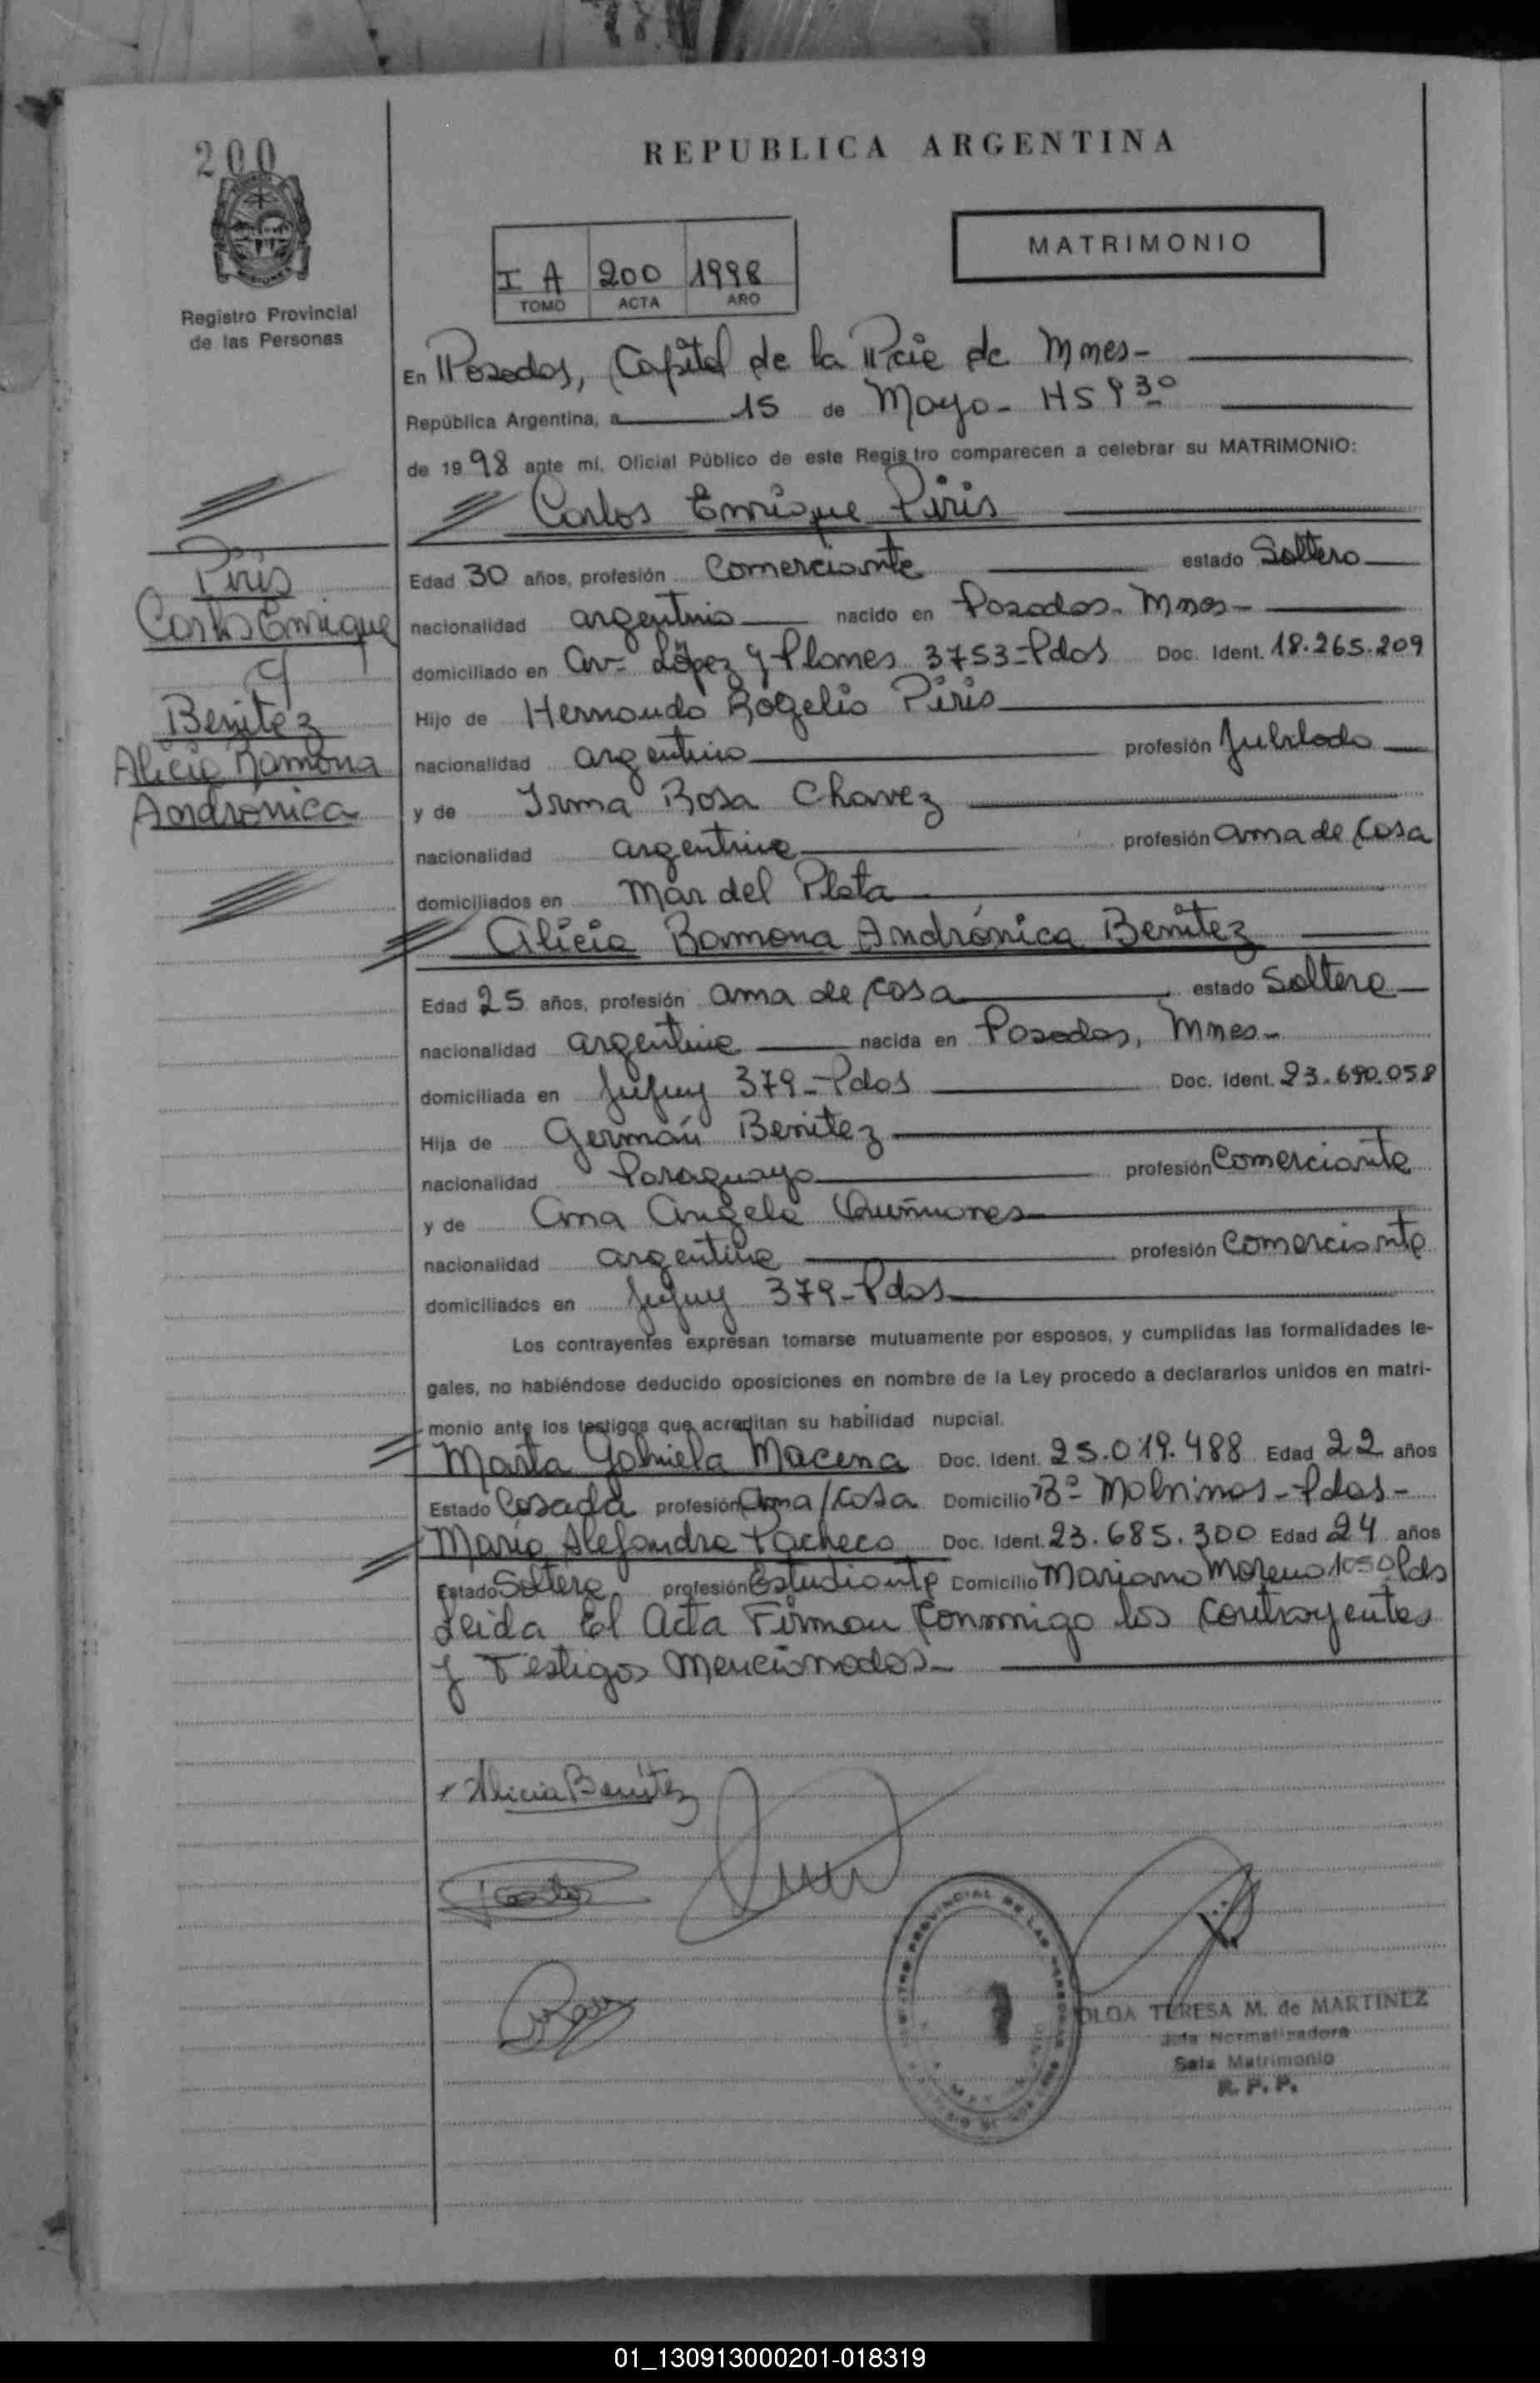 200
REPUBLICA ARGENTINA
MATRIMONIO
I A 200 1998
TOMO ACTA AÑO
Registro Provincial
de las Personas
En Posadas, Capital de la Pcie de Mnes-
República Argentina, a 15 de Mayo- HS 9 30
de 1998 ante mí, Oficial Público de este Registro comparecen a celebrar su MATRIMONIO:
Carlos Enrique Piris
Piris
Carlos Enrique
y
Benitez
Alicia Ramona
Andrónica
Edad 30 años, profesión Comerciante estado Soltero
nacionalidad argentino nacido en Posadas- Mnes-
domiciliado en Av- López y Planes 3753-Pdas Doc. Ident. 18.265.209
Hijo de Hernando Rogelio Piris
nacionalidad argentino profesión Jubilado
y de Irma Rosa Chavez
nacionalidad argentina profesión ama de casa
domiciliados en Mar del Plata
Alicia Ramona Andrónica Benitez
Edad 25 años, profesión ama de casa estado Soltera
nacionalidad argentina nacida en Posadas, Mnes-
domiciliada en Jujuy 379-Pdas Doc. Ident. 23.690.058
Hija de Germán Benitez
nacionalidad Paraguayo profesión Comerciante
y de Ana Angela Quiñones
nacionalidad argentina profesión Comerciante
domiciliados en Jujuy 379-Pdas
Los contrayentes expresan tomarse mutuamente por esposos, y cumplidas las formalidades le-
gales, no habiéndose deducido oposiciones en nombre de la Ley procedo a declararlos unidos en matri-
monio ante los testigos que acreditan su habilidad nupcial.
Marta Gabriela Macena Doc. Ident. 25.019.488 Edad 22 años
Estado Casada profesión Ama/casa Domicilio Bº Malvinas-Pdas-
María Alejandra Pacheco Doc. Ident. 23.685.300 Edad 24 años
Estado Soltera profesión Estudiante Domicilio Mariano Moreno 1050 Pds
Leida El Acta Firman Conmigo los Contrayentes
y Testigos Mencionados-
Alicia Benítez
OLGA TERESA M. de MARTINEZ
Jefa Normalizadora
Sala Matrimonio
R. P. P.
01_130913000201-018319